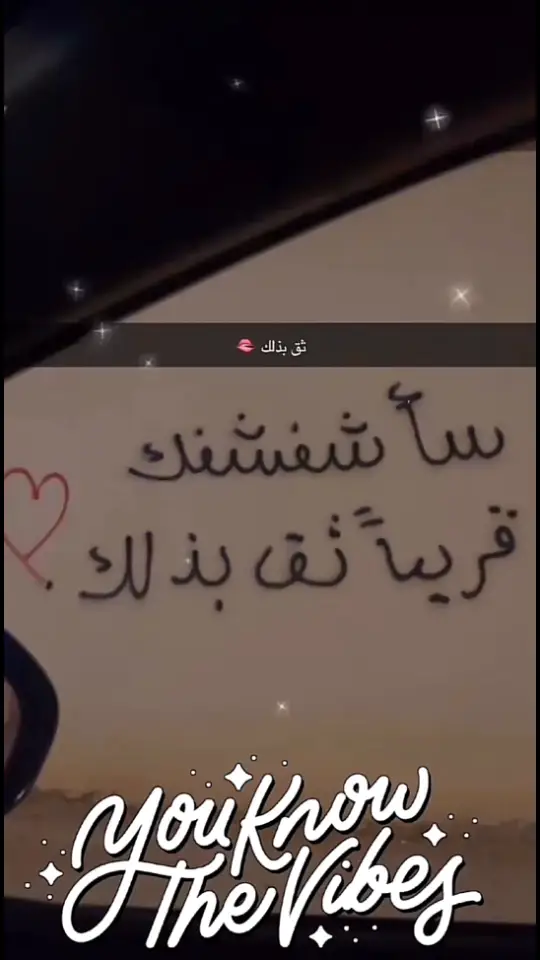 ثق بذلك 💋
سأشفشفك
قريباً ثق بذلك .
You Know
The Vibes